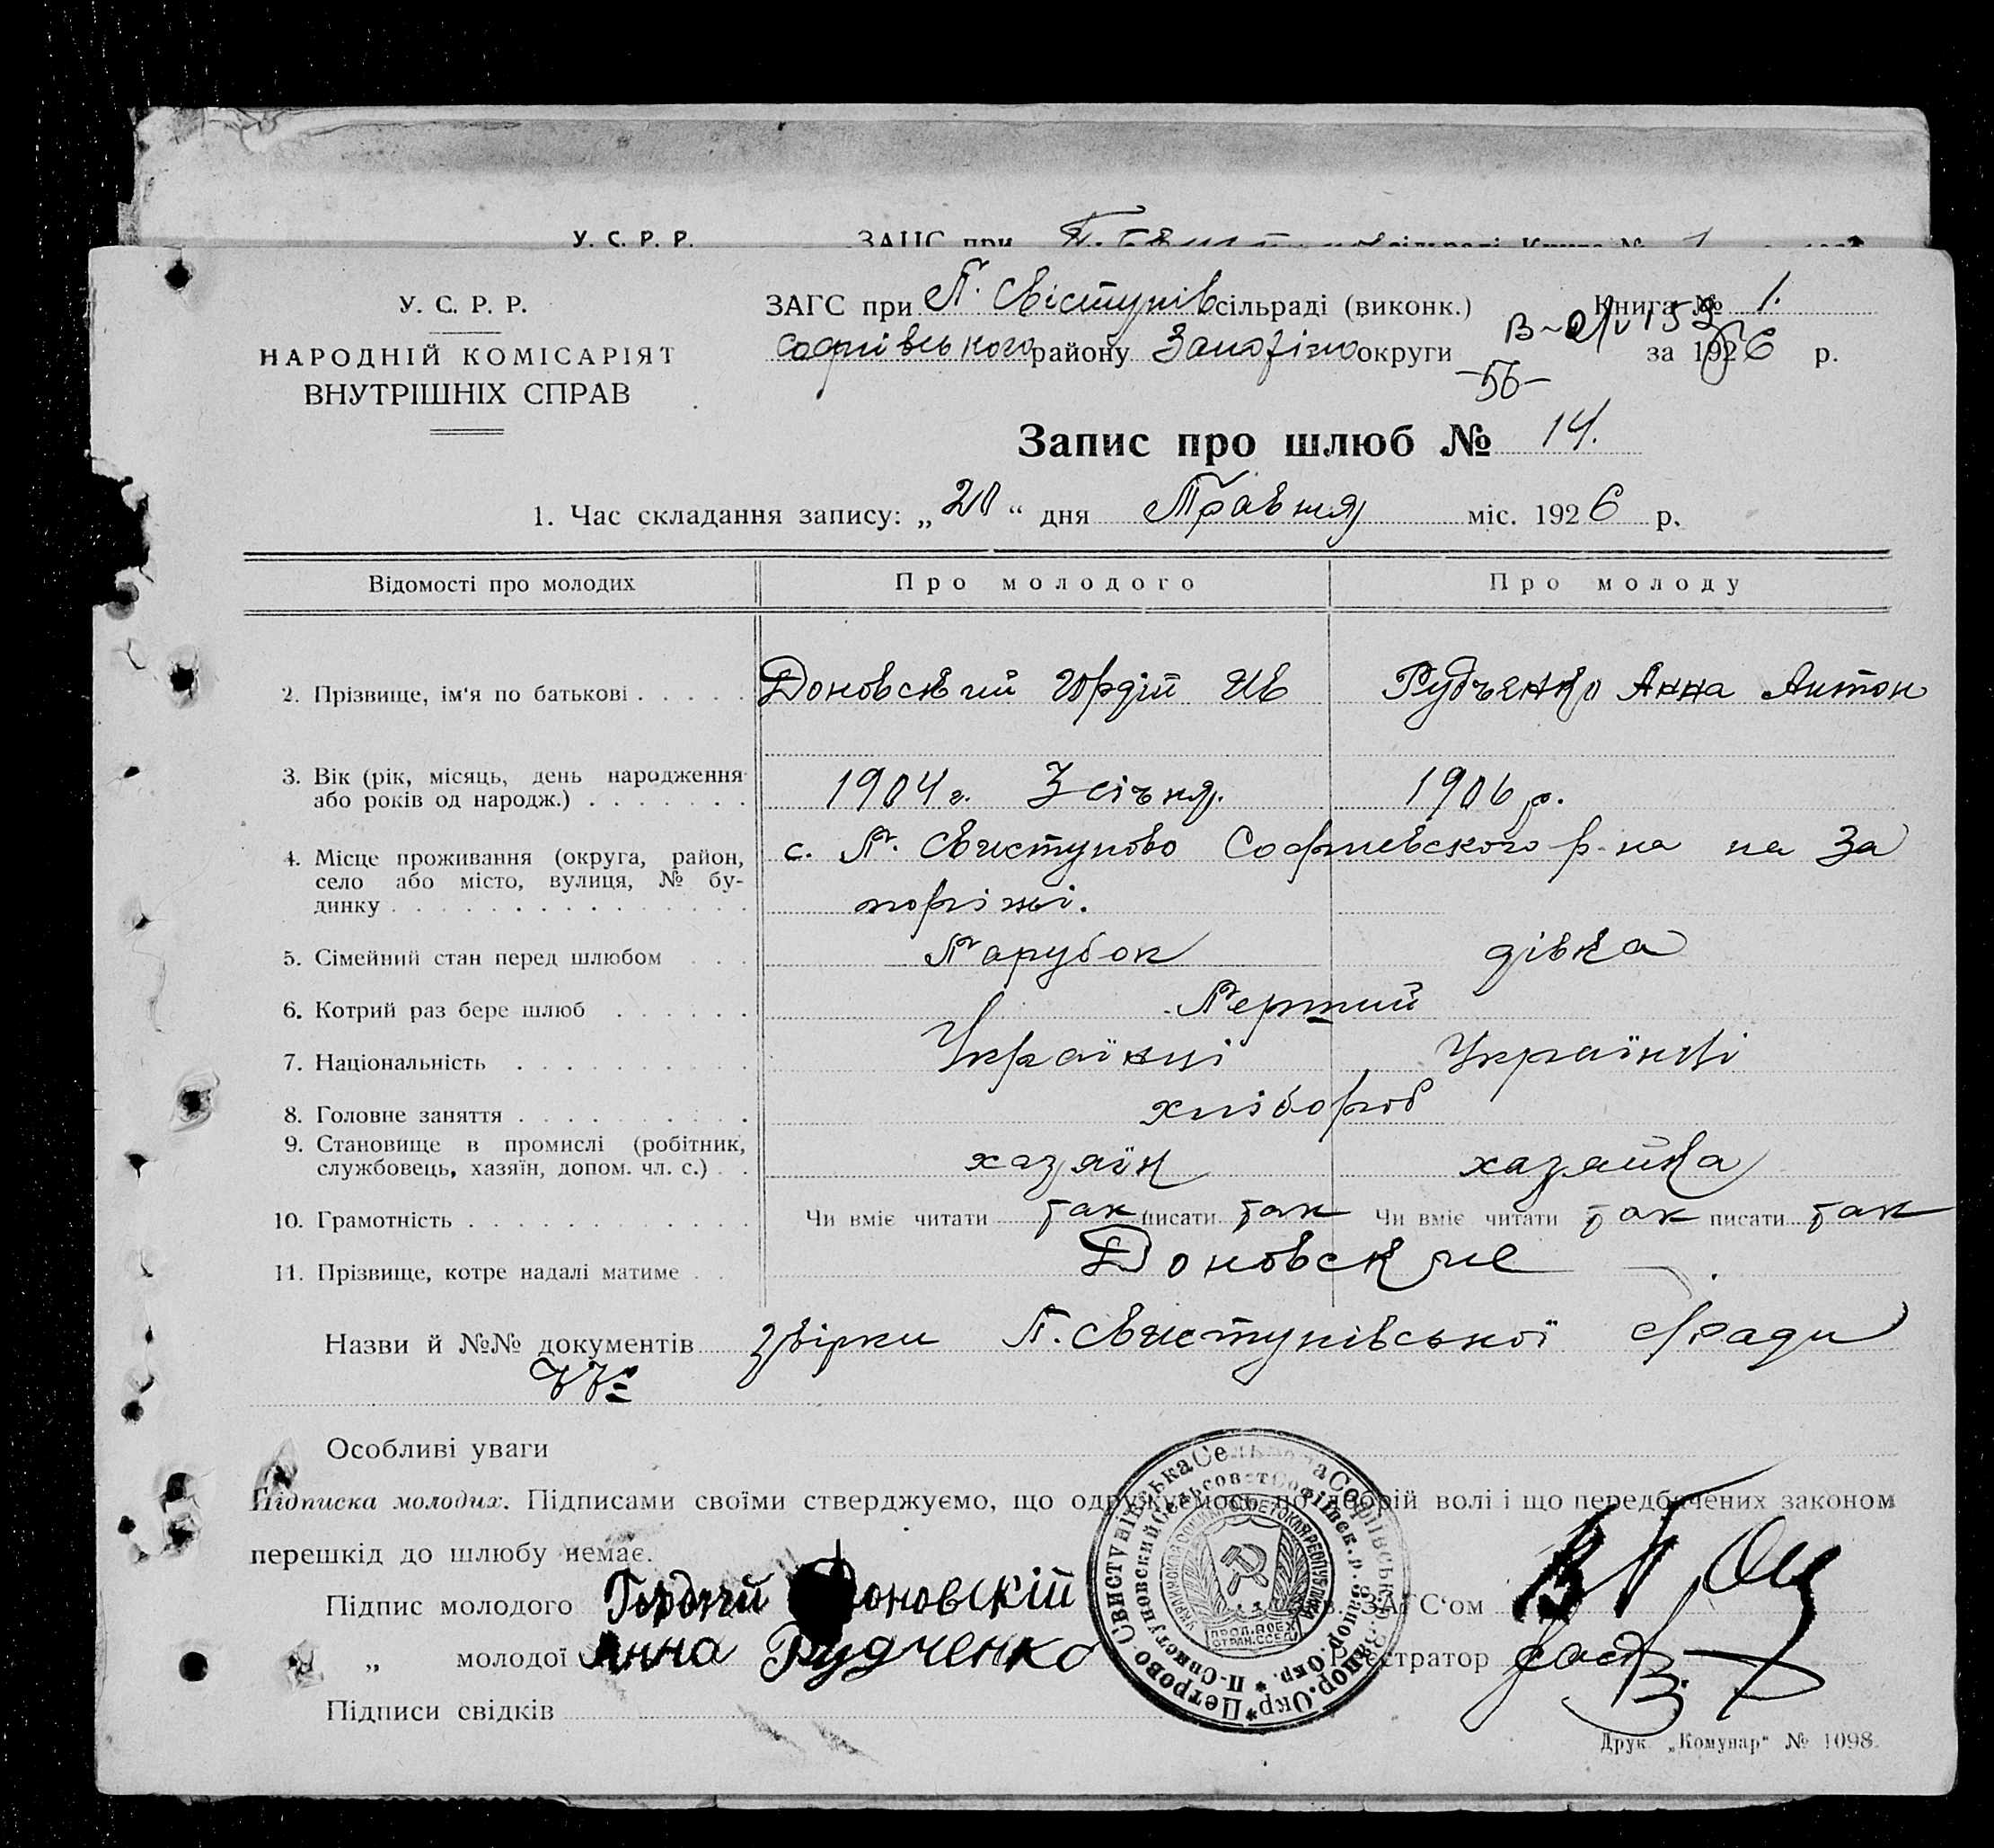 У. С. Р. Р. ЗАГС при
У. С. Р. Р.
НАРОДНІЙ КОМІСАРІЯТ
ВНУТРІШНІХ СПРАВ
ЗАГС при П. Свістунів сільраді (виконк.) Книга № 1.
Софіївського району Запоріжо округи за 1926 р.
-56-
Запис про шлюб № 14.
1. Час складання запису: „20“ дня Травня міс. 1926 р.
Відомості про молодих Про молодого Про молоду
2. Прізвище, ім'я по батькові Доновский Юрдій Ив Рудченко Анна Антон
3. Вік (рік, місяць, день народження
або років од народж.) 1904 г. 3 січня. 1906 р.
4. Місце проживання (округа, район, с. П. Свистуново Софиевского р-на на За
село або місто, вулиця, № бу-
динку поріжжі.
5. Сімейний стан перед шлюбом Парубок дівка
6. Котрий раз бере шлюб Перший
7. Національність Українці Українці
8. Головне заняття хлібороб
9. Становище в промислі (робітник,
службовець, хазяїн, допом. чл. с.) хазяїн хазяйка
10. Грамотність Чи вміє читати так писати так Чи вміє читати так писати так
11. Прізвище, котре надалі матиме Доновские
Назви й №№ документів звірки П. Свистунівської с/ради
Особливі уваги
Підписка молодих. Підписами своїми стверджуємо, що одружуємось по добрій волі і що передбачених законом
перешкід до шлюбу немає.
Підпис молодого Гордий Доновскій
Зав. ЗАГС'ом
„ молодої Анна Рудченко
Реєстратор
Підписи свідків
Петрово-Свистунівська Сельрада Софіївськ. р. Запор. Окр.
П-Свистуновский Сельсовет Софіївск. р. Запор. Окр.
УКРАИНСКАЯ СОЦИАЛ. СОВЕТСКАЯ РЕСПУБЛИКА
ПРОЛ. ВСЕХ
СТРАН. ССЕД.
Друк. „Комунар“ № 1098.